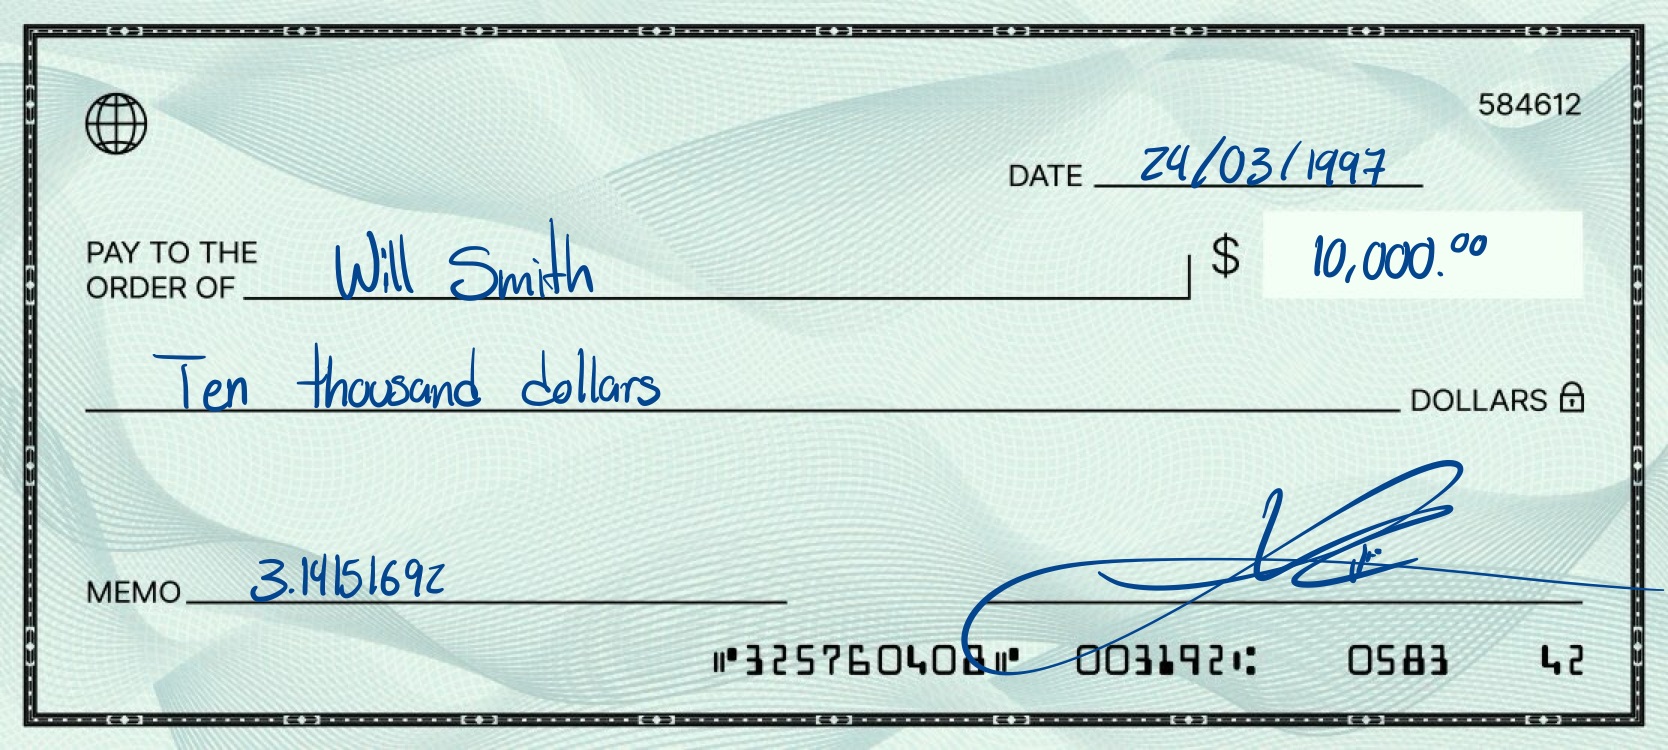 584612
DATE 24/03/1997
PAY TO THE
ORDER OF Will Smith $ 10,000.00
Ten thousand dollars DOLLARS
MEMO 3.14151692
⑈325760408⑈ 003192⑆ 0583 42